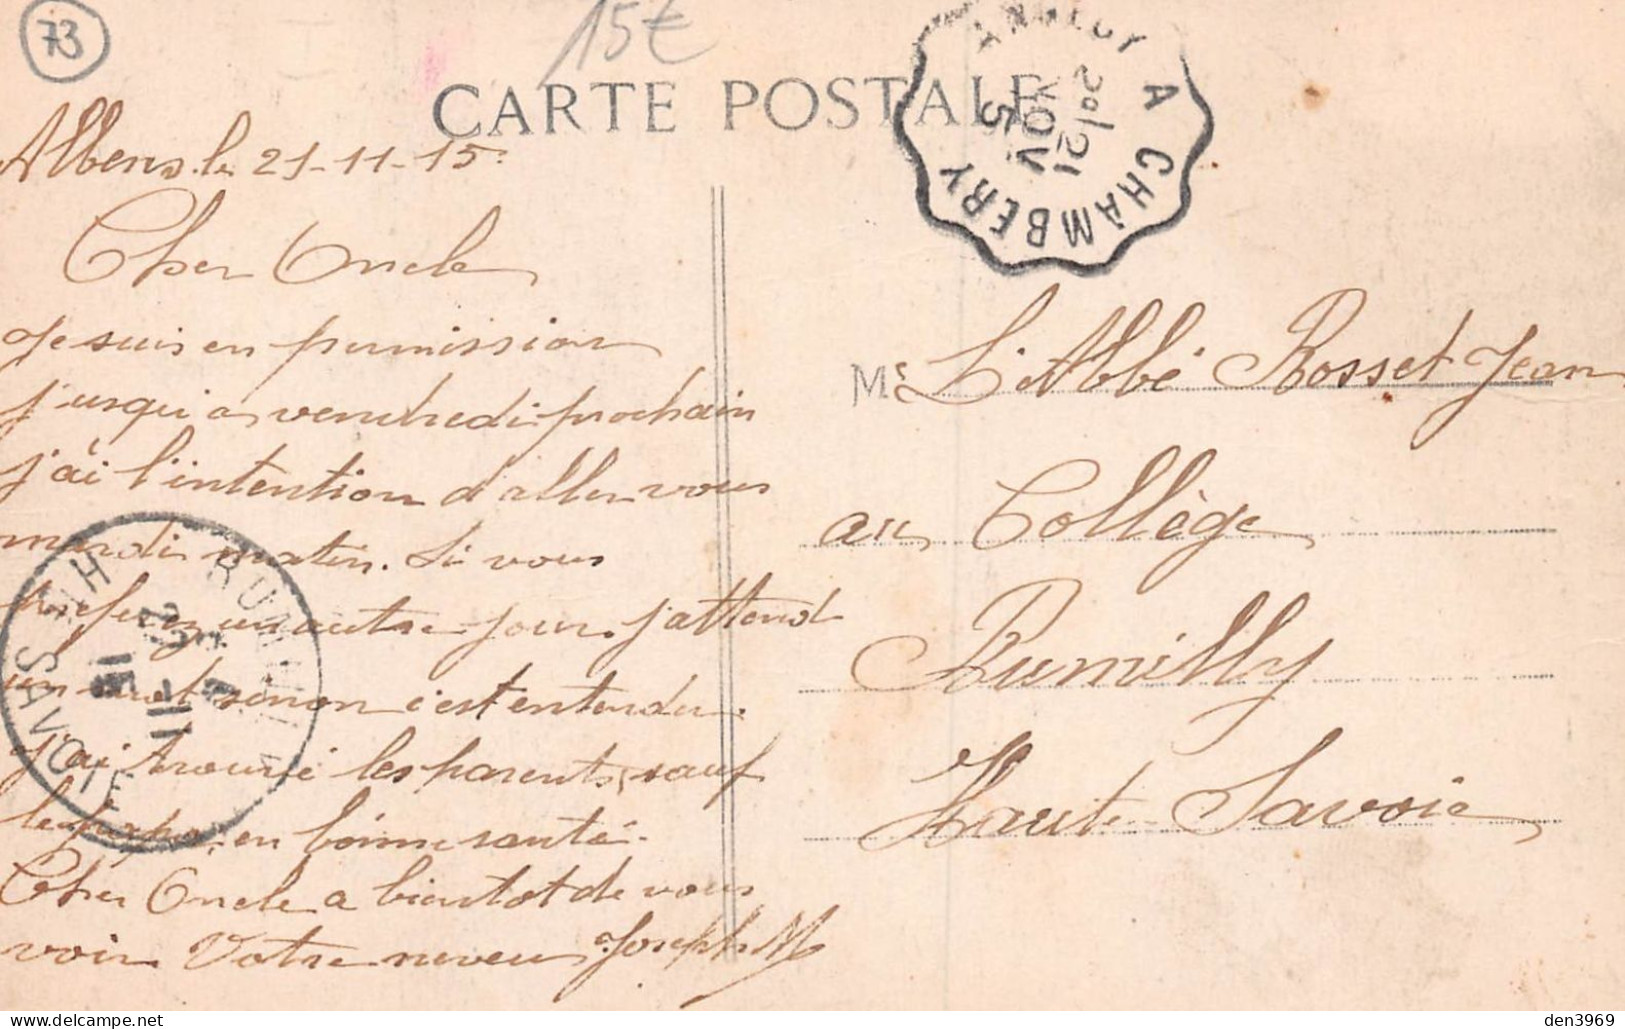 73
15€
CARTE POSTALE
ANNECY A CHAMBERY
20/21
NOV
15
Albens le 21-11-15.
Cher Oncle
Je suis en permission
jusqu'a vendredi prochain
j'ai l'intention d'aller vous
mardi matin. Si vous
preferez un autre jour. j'attend
un mot sinon c'est entendu.
J'ai trouvé les parents, sauf
le papa, en bonne santé.
Cher Oncle a bientot de vous
voir. Votre neveu Joseph M
Mr L'Abbé Rosset Jean
au Collège
Rumilly
Haute-Savoie
RUMILLY
HTE SAVOIE
den3969